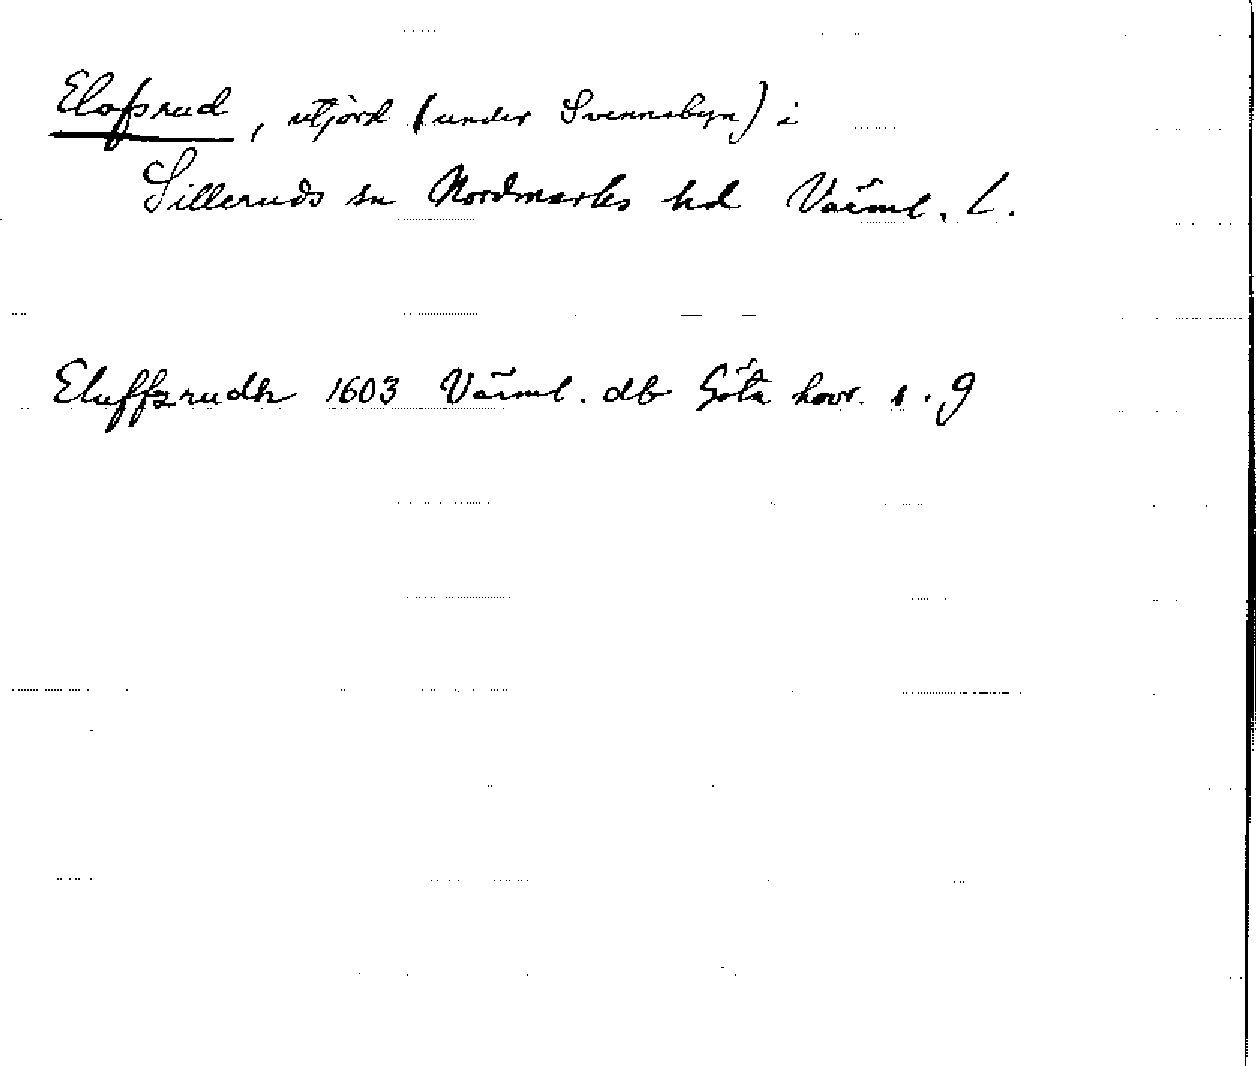 Elofsrud, utjord (under Svennebyn) i
Silleruds sn Nordmarks hd Värml. L.
Eluffzrudh 1603 Värml. db Göta hovr. s. 9